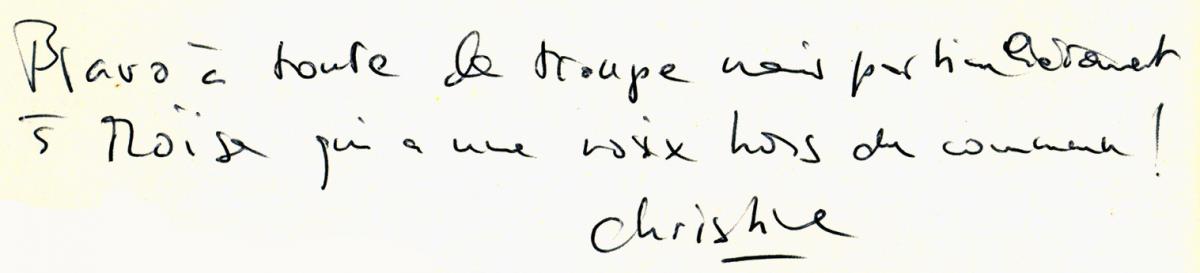 Bravo à toute la troupe mais particulièrement
à Moïse qui a une voix hors du commun !
Christine